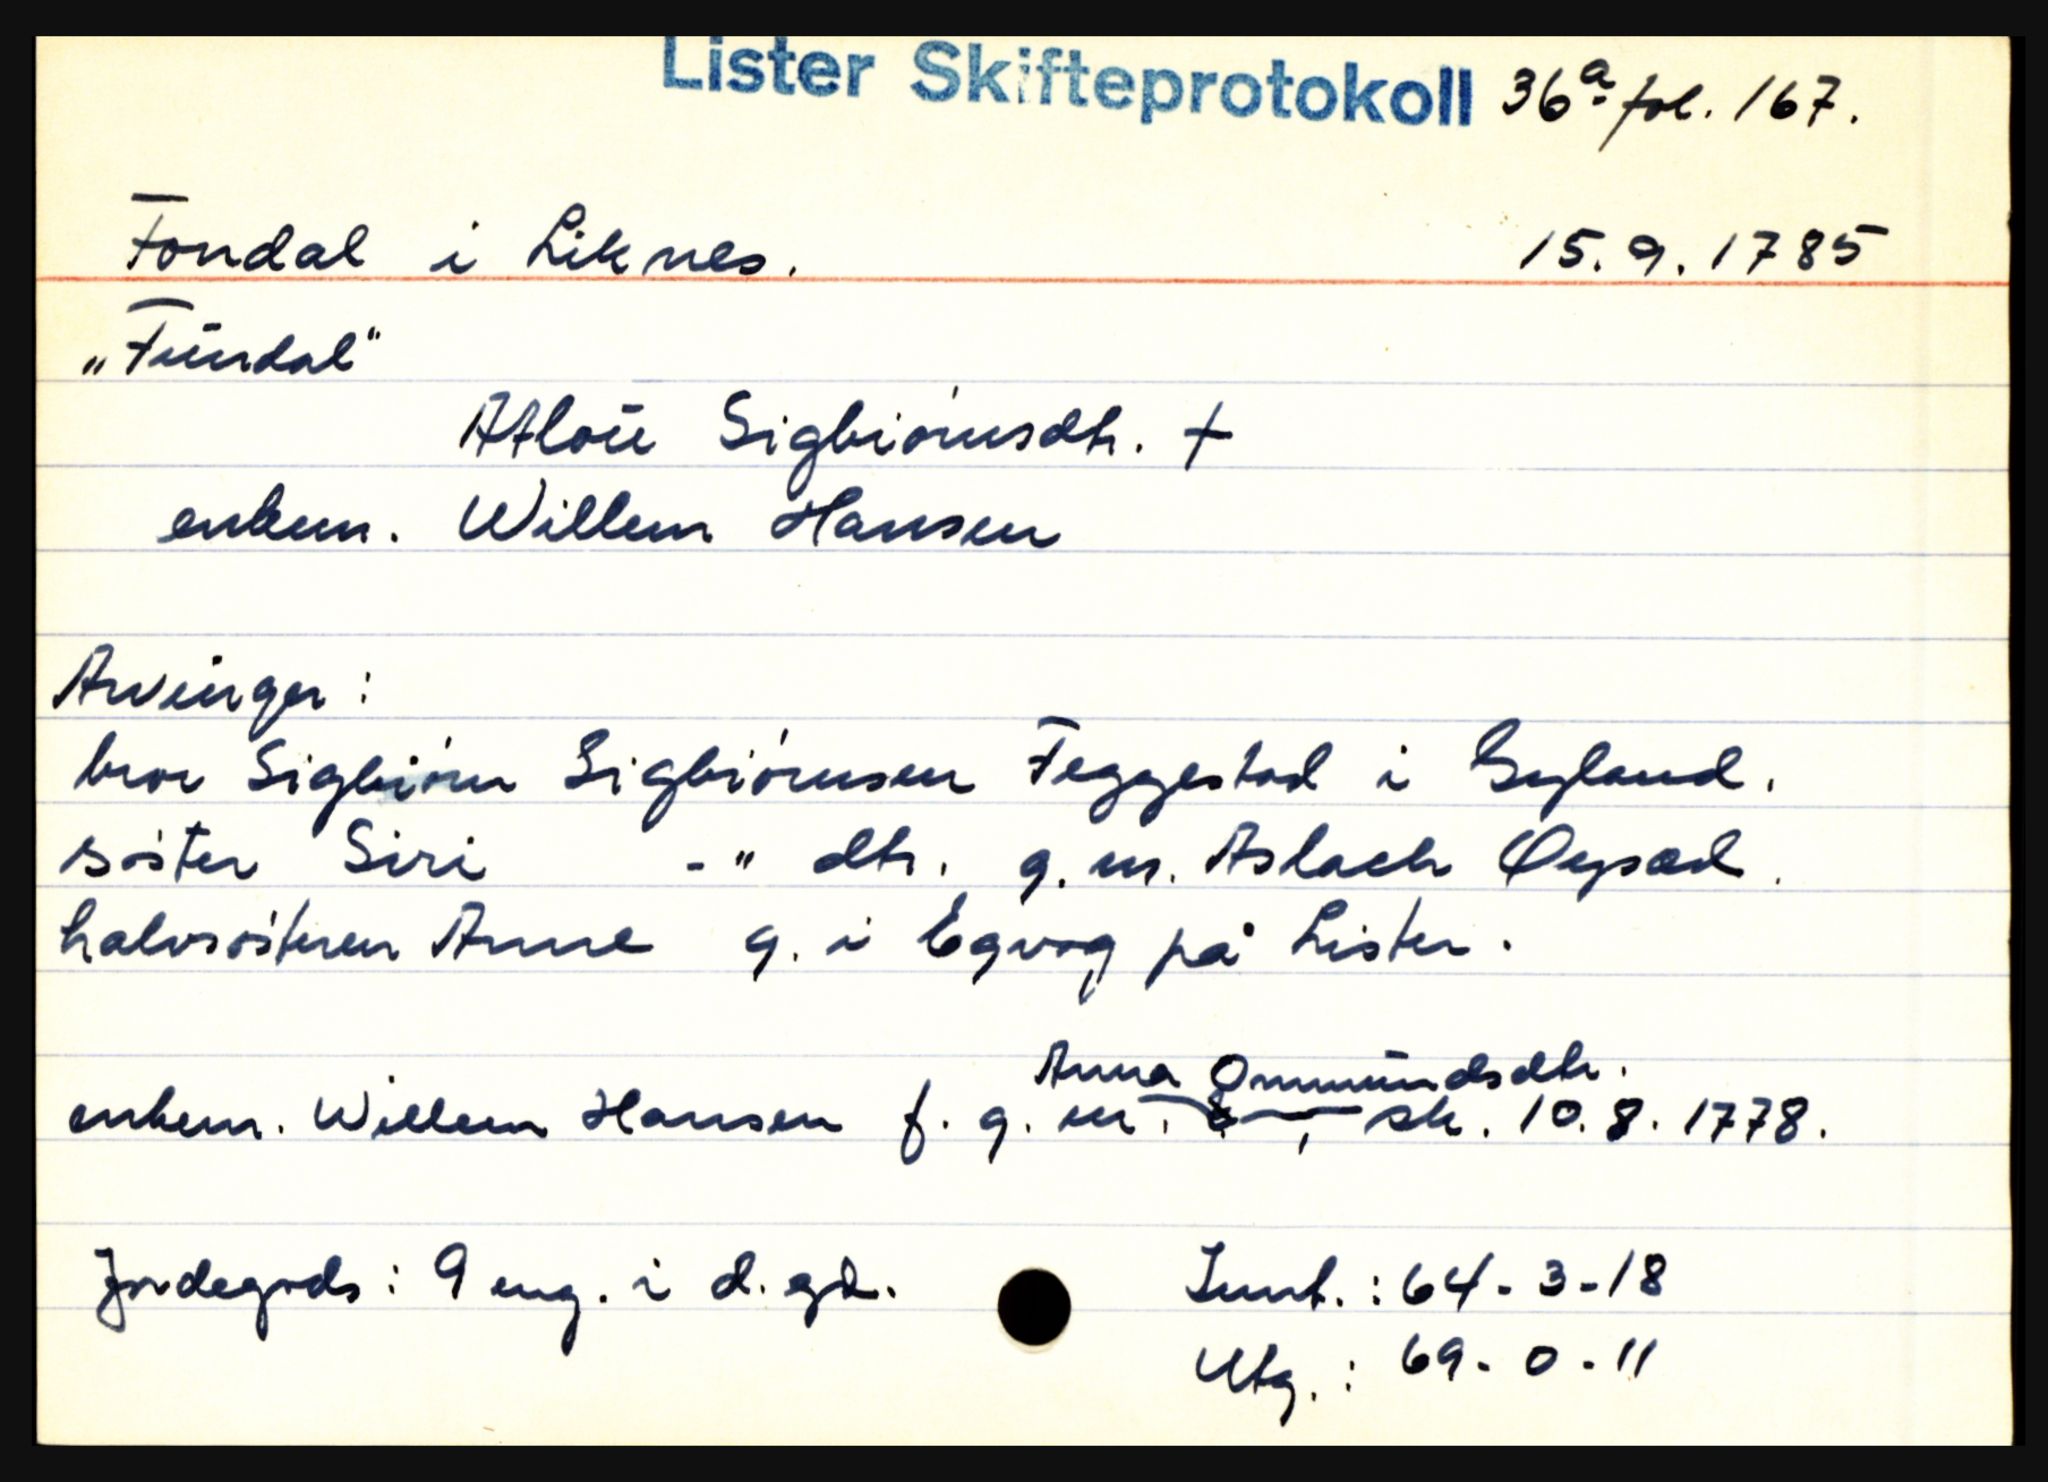 Lister Skifteprotokoll 36a. fol. 167.
Fondal i Liknes. 15.9.1785
„Fündal"
Atloü Sigbiórnsdtr. †
enkem. Willem Hansen
Arvinger:
bror Sigbiórn Sigbiórnsen Feggestad i Gyland.
sóster Siri -" dtr. g.m. Aslach Øysæd.
halvsósteren Anne g. i Egvog på Lister.
Anna Ommündsdtr.
enkem. Willem Hansen f. g. m. , sk. 10.8.1778.
Jordegods: 9 eng. i d. gd. Innt.: 64-3-18
Utg.: 69-0-11